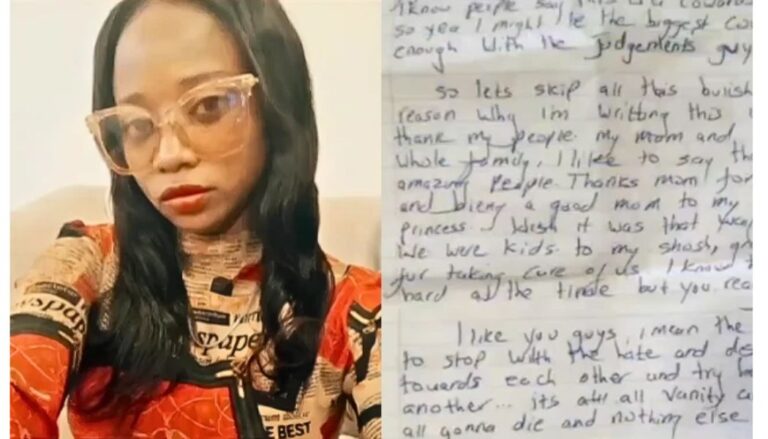 spape
E BEST
I know people say this is a coward
so yea I might be the biggest co
enough with the judgements guy
so lets skip all this bullsh
reason why I'm writting this
thank my people. my mom and
whole family, I like to say th
amazing people. Thanks mom for
and being a good mom to my
princess. I wish it was that
We were kids. to my
for taking care of us. I know
hard all the time but you rea
I like you guys, i mean the
to stop with the hate and de
towards each other and try
another... its all vanity
all gonna die and nothing else